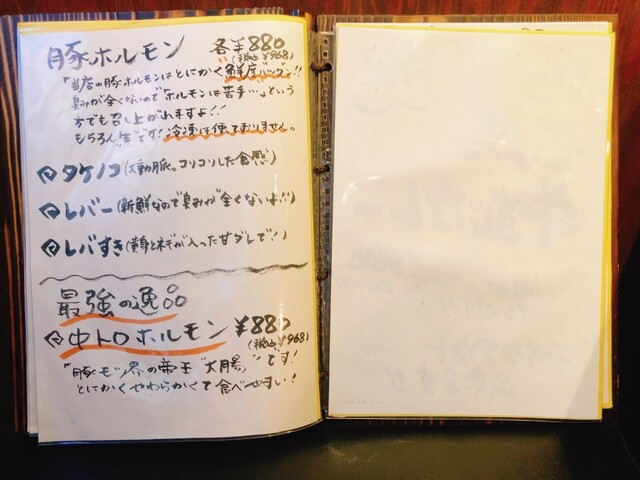 豚ホルモン 各¥880
(税込¥968)
「当店の豚ホルモンはとにかく鮮度バツグン!!
臭みが全くないので"ホルモンは苦手…"という
方でも召し上がれますよ!!
もちろん"生"です!冷凍は使っておりません。
タケノコ(大動脈。コリコリした食感)
レバー(新鮮なので臭みが全くないよ!!)
レバすき(黄身とネギが入った甘ダレで!)
最強の逸品
中トロホルモン ¥880
(税込¥968)
「豚モツ界の帝王"大腸"です!
とにかくやわらかくて食べやすい!